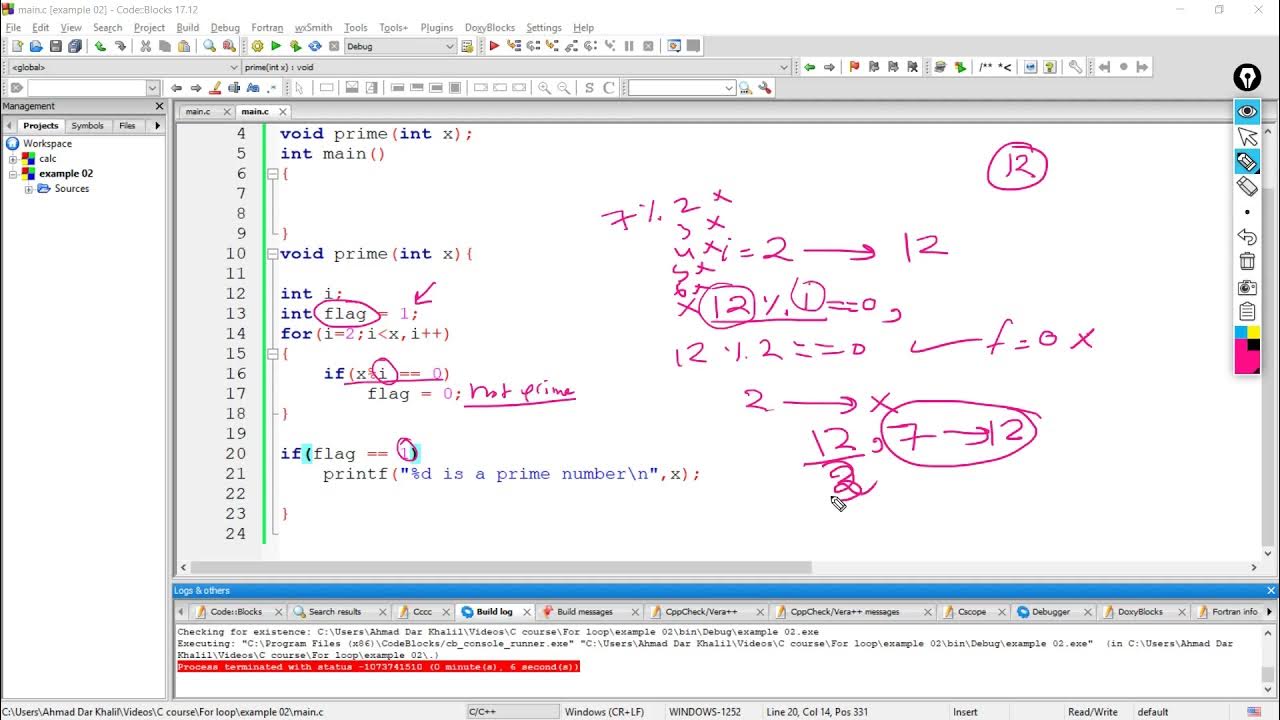 main.c [example 02] - Code::Blocks 17.12
File Edit View Search Project Build Debug Fortran wxSmith Tools Tools+ Plugins DoxyBlocks Settings Help
Debug
<global> prime(int x) : void
/** *<
S C
Management
Projects Symbols Files
Workspace
calc
example 02
Sources
main.c main.c
4 void prime(int x);
5 int main()
6 {
7
8
9 }
10 void prime(int x){
11
12 int i;
13 int flag = 1;
14 for(i=2;i<x,i++)
15 {
16 if(x%i == 0)
17 flag = 0; not prime
18 }
19
20 if(flag == 1)
21 printf("%d is a prime number\n",x);
22
23 }
24
12
7 % 2 x
3 x
4 x i = 2 → 12
5 x
6 x
x 12 % i == 0,
12 % 2 == 0 f = 0 x
2 → x
12 , 7 → 12
2
Logs & others
Code::Blocks Search results Cccc Build log Build messages CppCheck/Vera++ CppCheck/Vera++ messages Cscope Debugger DoxyBlocks Fortran info
Checking for existence: C:\Users\Ahmad Dar Khalil\Videos\C course\For loop\example 02\bin\Debug\example 02.exe
Executing: "C:\Program Files (x86)\CodeBlocks/cb_console_runner.exe" "C:\Users\Ahmad Dar Khalil\Videos\C course\For loop\example 02\bin\Debug\example 02.exe" (in C:\Users\Ahmad Dar
Khalil\Videos\C course\For loop\example 02\.)
Process terminated with status -1073741510 (0 minute(s), 6 second(s))
C:\Users\Ahmad Dar Khalil\Videos\C course\For loop\example 02\main.c C/C++ Windows (CR+LF) WINDOWS-1252 Line 20, Col 14, Pos 331 Insert Read/Write default